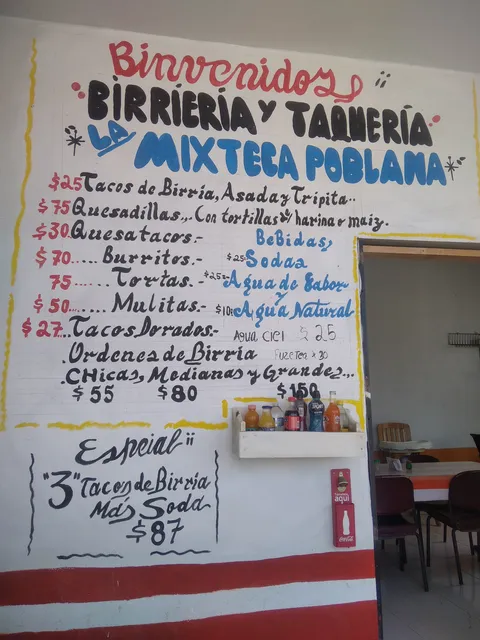 Bienvenidos
BIRRIERIA Y TAQUERÍA
LA MIXTECA POBLANA
$25 Tacos de Birria, Asada y Tripita..
$75 Quesadillas,.. Con tortillas d/ harina o maiz.
$30 Quesatacos.-
$70 .... Burritos.-
75 .... Tortas.-
$50 .... Mulitas.-
$27... Tacos Dorados.-
BeBidas
$25 Sodas
$25 Agua de Sabor
y
$10 Agua Natural
AGUA CIEL $25
.Ordenes de Birria
FUZETEA $30
.CHicas, Medianas y Grandes...
$55 $80 $150
Especial ¡¡
"3" Tacos de Birria
Más Soda
$87
aquí
Coca-Cola